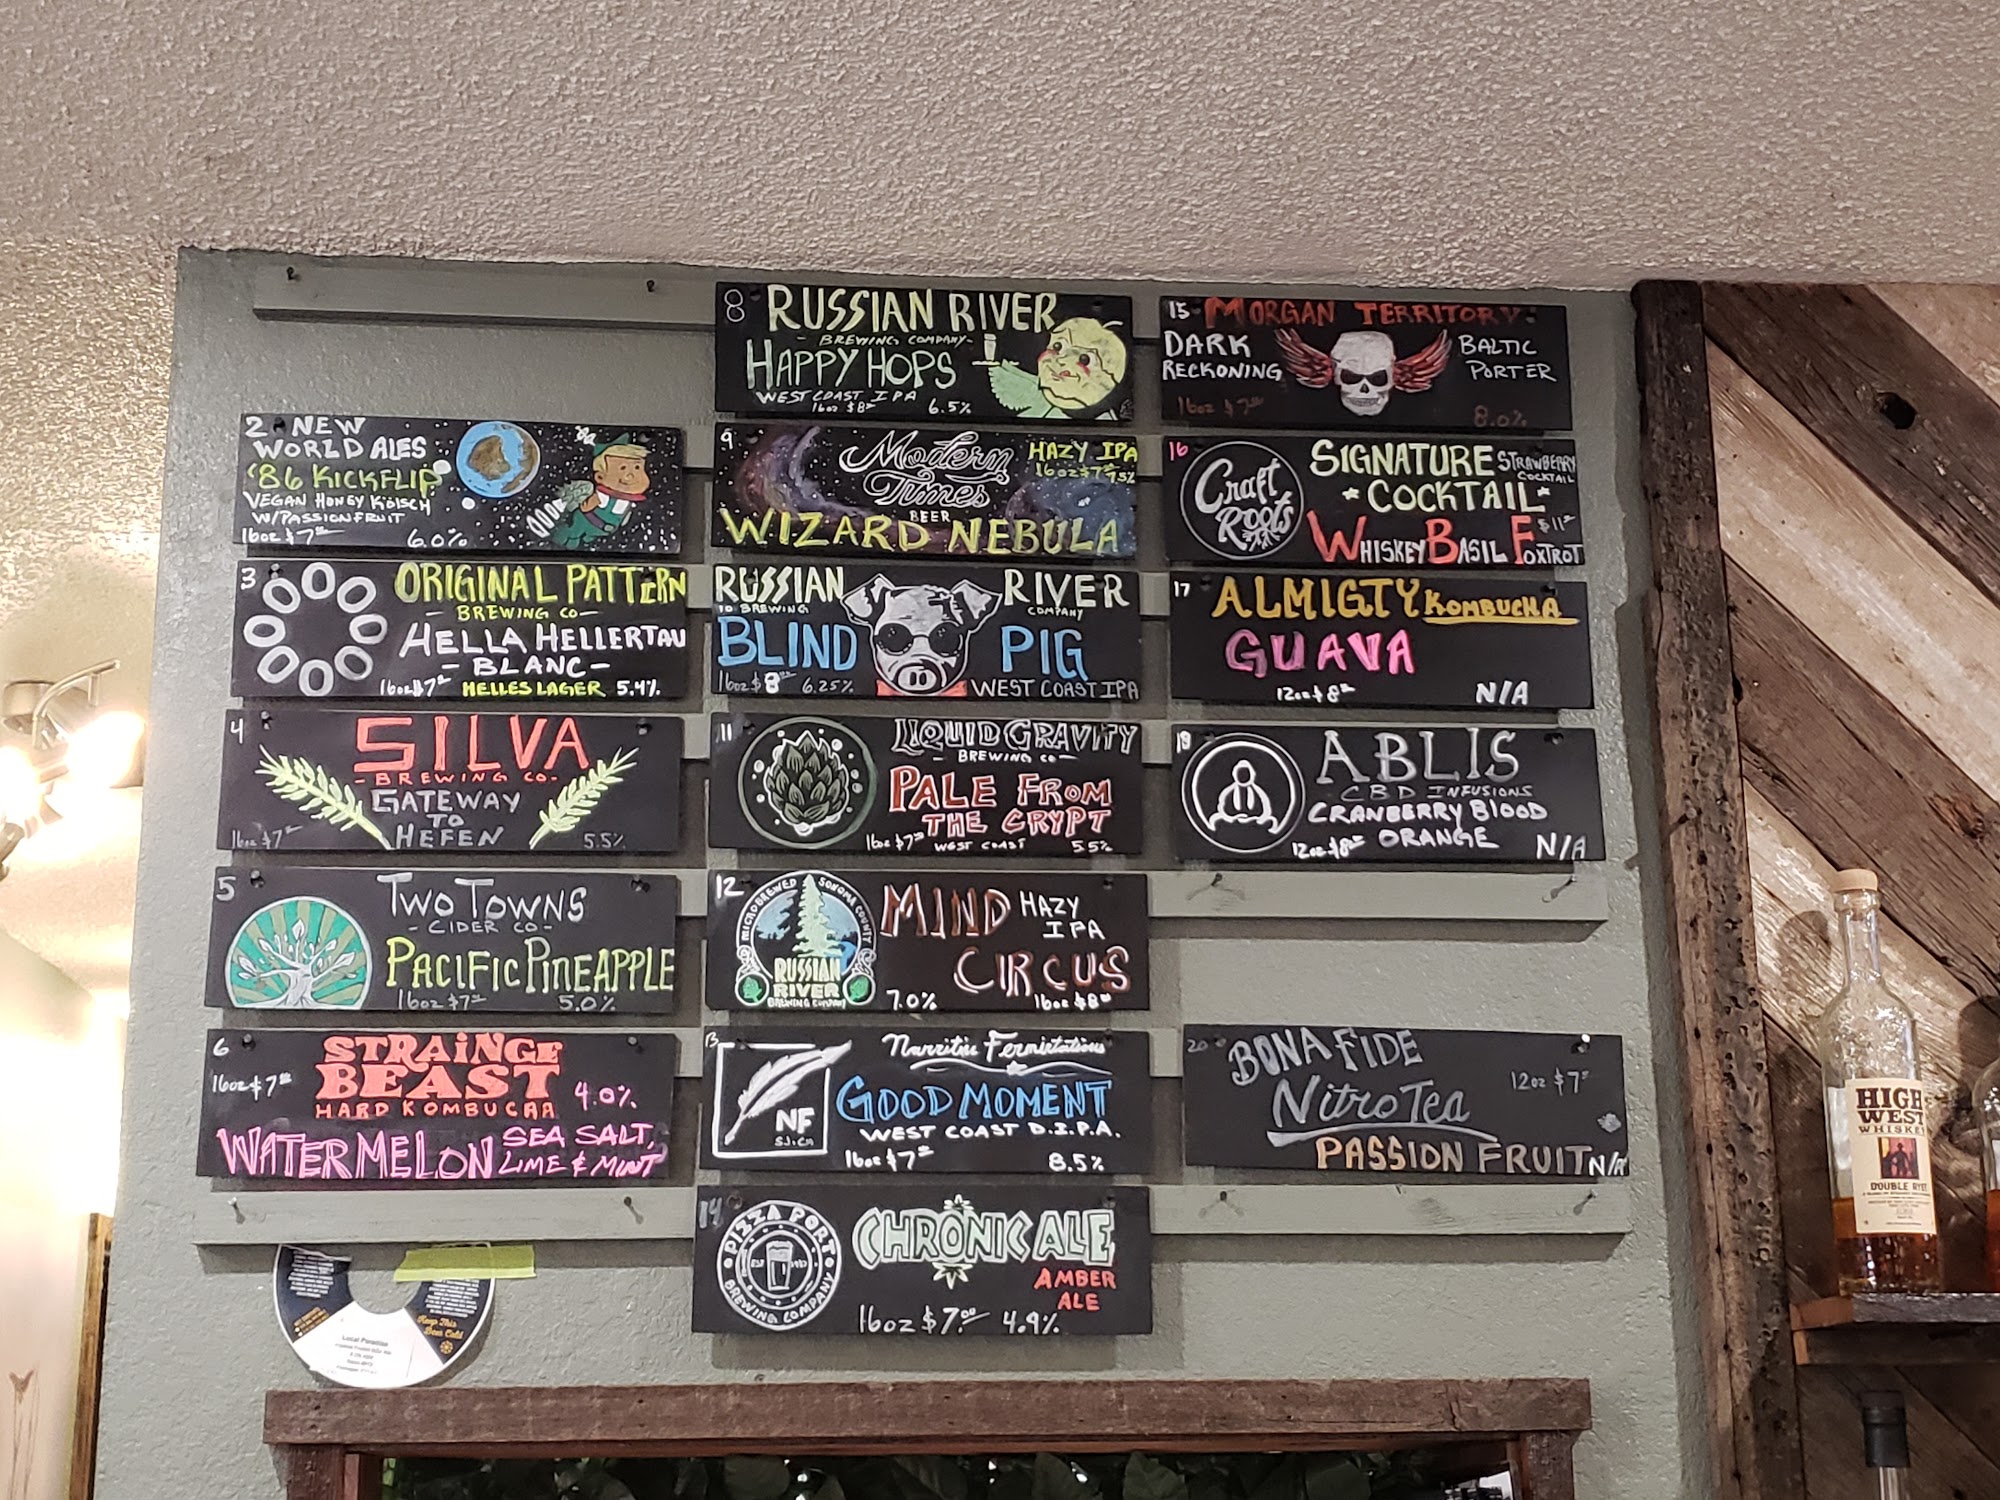 2 NEW
WORLD ALES
'86 KICKFLIP
VEGAN HONEY KÖLSCH
W/PASSIONFRUIT
16oz $7
6.0%
3 ORIGINAL PATTERN
- BREWING CO -
HELLA HELLERTAU
- BLANC -
16oz $7
HELLES LAGER 5.4%
4 SILVA
- BREWING CO -
GATEWAY
TO
HEFEN
16oz $7
5.5%
5 TWO TOWNS
- CIDER CO -
PACIFIC PINEAPPLE
16oz $7
5.0%
6 STRAINGE
BEAST
16oz $7
HARD KOMBUCHA 4.0%
WATERMELON SEA SALT,
LIME & MINT
8 RUSSIAN RIVER
- BREWING COMPANY -
HAPPY HOPS
WEST COAST IPA
16oz $8 6.5%
9 Modern
Times
BEER
HAZY IPA
16oz $7 7.5%
WIZARD NEBULA
RUSSIAN RIVER
10 BREWING COMPANY
BLIND PIG
16oz $8 6.25% WEST COAST IPA
11 LIQUID GRAVITY
- BREWING CO -
PALE FROM
THE CRYPT
16oz $7 WEST COAST 5.5%
12 MICROBREWED SONOMA COUNTY
RUSSIAN
RIVER
BREWING COMPANY
MIND HAZY
IPA
CIRCUS
7.0% 16oz $8
13 Narrative Fermentations
NF
SJ.CA
GOOD MOMENT
WEST COAST D.I.P.A.
16oz $7 8.5%
14 PIZZA PORT
EST 1987
BREWING COMPANY
CHRONIC ALE
AMBER
ALE
16oz $7.00 4.9%
15 MORGAN TERRITORY
DARK
RECKONING
BALTIC
PORTER
16oz $7
8.0%
16 Craft
Roots
SIGNATURE STRAWBERRY
COCKTAIL
COCKTAIL
$11
WHISKEY BASIL FOXTROT
17 ALMIGTY KOMBUCHA
GUAVA
12oz $8 N/A
19 ABLIS
CBD INFUSIONS
CRANBERRY BLOOD
12oz $8 ORANGE N/A
20 BONA FIDE
12oz $7
NITRO TEA
PASSION FRUIT N/A
Keep This
Beer Cold
HIGH
WEST
WHISKEY
DOUBLE RYE!